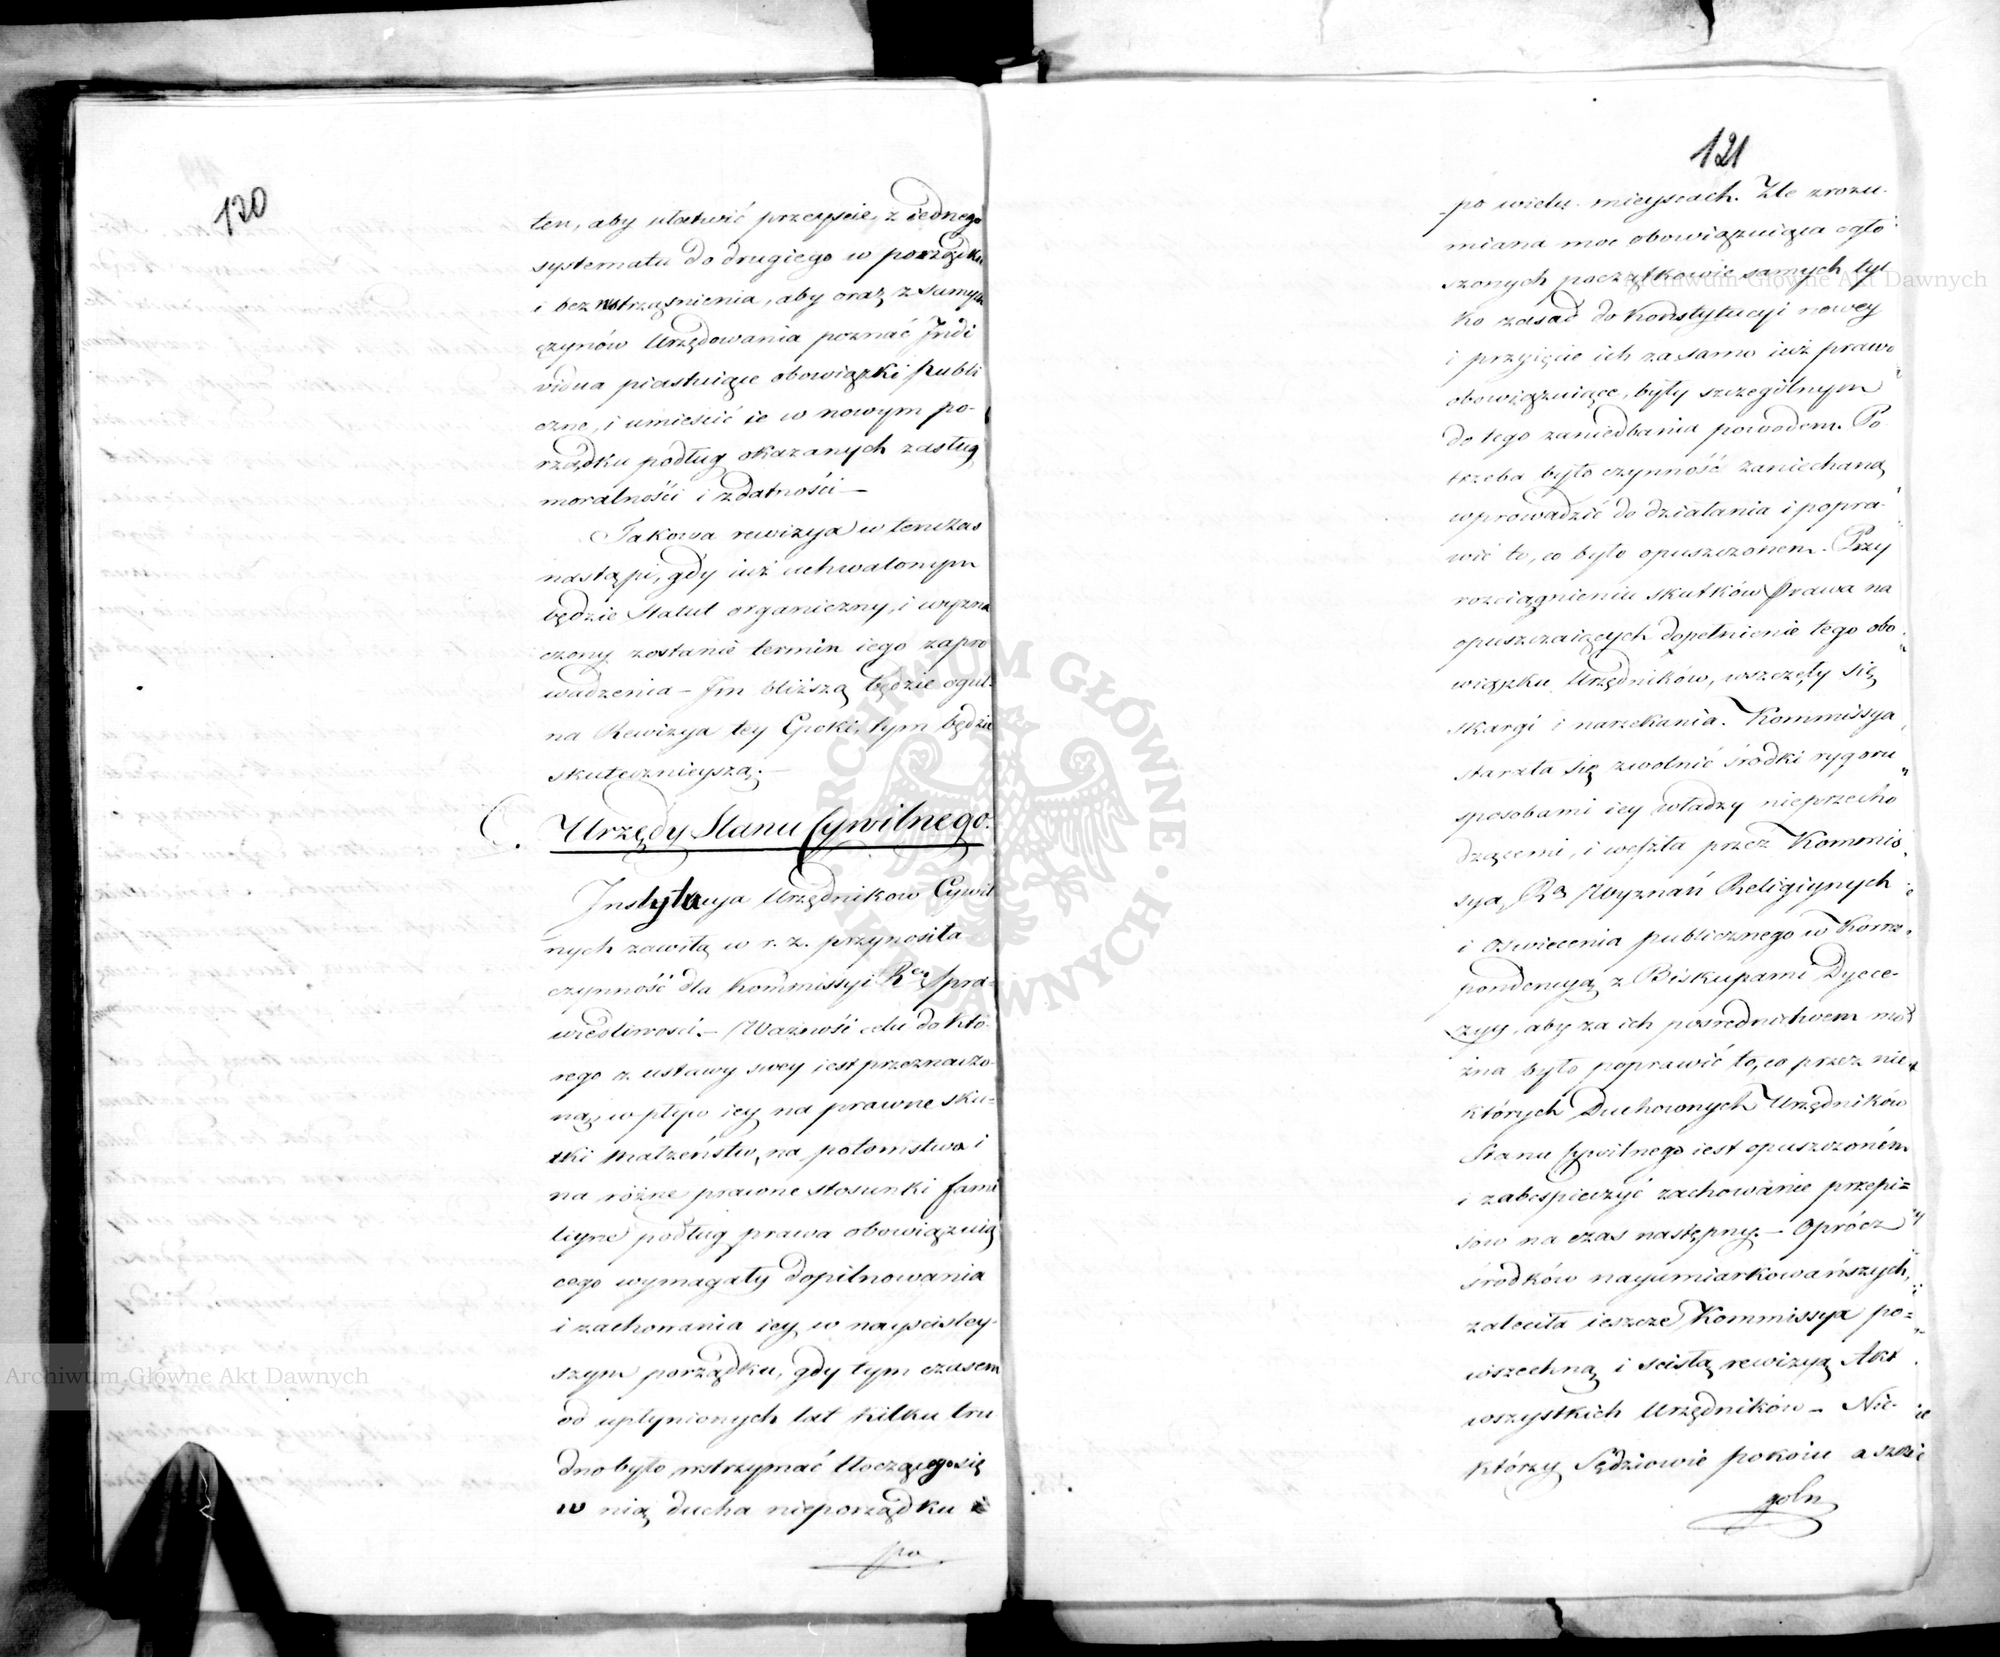 120
ten, aby ułatwić przeyście z iednego
systematu do drugiego w porządku
i bez wstrząśnienia, aby oraz z samych
czynów Urzędowania poznać Indi
vidua piastuiące obowiązki publi
czne, i umieścić ie w nowym po-
rządku podług okazanych zasług
moralności i zdatności —
Takowa rewizya w tenczas
nastąpi, gdy iuż uchwalonym
będzie Statut organiczny, i wyzna
czony zostanie termin iego zapro
wadzenia — Im bliższą będzie ogul-
na Rewizya tey Epoki, tym będzie
skutecznieyszą. —
C. Urzędy Stanu Cywilnego.
Instytucya Urzędnikow Cywil
nych zawiłą w r. z. przynosiła
czynność dla Kommissyi Rey Spra-
wiedliwości. — Ważność celu do któ-
rego z ustawy swey iest przeznaczo-
ną, wpływ iey na prawne sku-
tki małżeństw, na potomstwo i
na różne prawne stosunki fami
liyne podług prawa obowiązuią
cego wymagały dopilnowania
i zachowania iey w nayściśley-
szym porządku, gdy tym czasem
od upłynionych lat kilku tru
dno było wstrzymać tłoczącego się
w nią ducha nieporządku i
po
121
po wielu mieyscach. Źle zrozu-
miana moc obowiązuiąca ogło-
szonych początkowie samych tyl
ko zasad do Konstytucyi nowey
i przyięcie ich za samo iuż prawo
obowiązuiące, były szczególnym
do tego zaniedbania powodem. Po
trzeba było czynność zaniechaną
wprowadzić do działania i popra-
wić to, co było opuszczonem. Przy
rozciągnieniu skutków Prawa na
opuszczaiących dopełnienie tego obo-
wiązku Urzędników, wszczęły się
skargi i narzekania. Kommissya
starała się zwolnić środki rygoru
sposobami iey władzy nieprzecho
dzącemi, i weszła przez Kommis-
syą Rą Wyznań Religiynych
i Oświecenia publicznego w Korres-
pondencyą z Biskupami Dyece-
zyy, aby za ich pośrednictwem mo-
żna było poprawić to, co przez nie-
których Duchownych Urzędników
Stanu Cywilnego iest opuszczoném
i zabespieczyć zachowanie przepi-
sow na czas następny. — Oprócz
środków nayumiarkowańszych,
zaleciła ieszcze Kommissya po-
wszechną i scisłą rewizyą Akt
wszystkich Urzędników — Nie-
którzy Sędziowie pokoiu a szcze
goln
Archiwum Główne Akt Dawnych
Archiwum Główne Akt Dawnych
ARCHIWUM GŁÓWNE AKT DAWNYCH